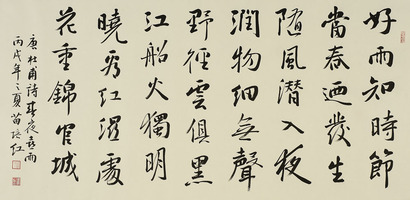 好雨知時節
當春迺發生
隨風潛入夜
潤物細無聲
野徑雲俱黑
江船火獨明
曉看紅溼處
花重錦官城
唐杜甫詩春夜喜雨
丙戌年之夏苗培红